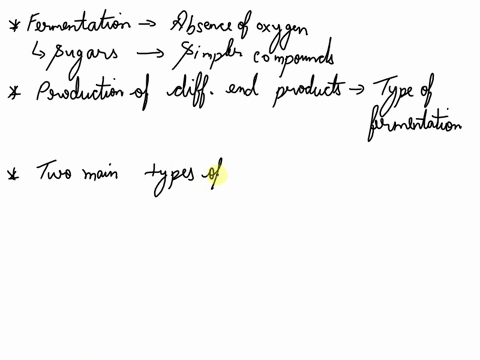 * Fermentation → Absence of oxygen
↳ Sugars → Simpler compounds
* Production of diff. end products → Type of
fermentation
* Two main types of